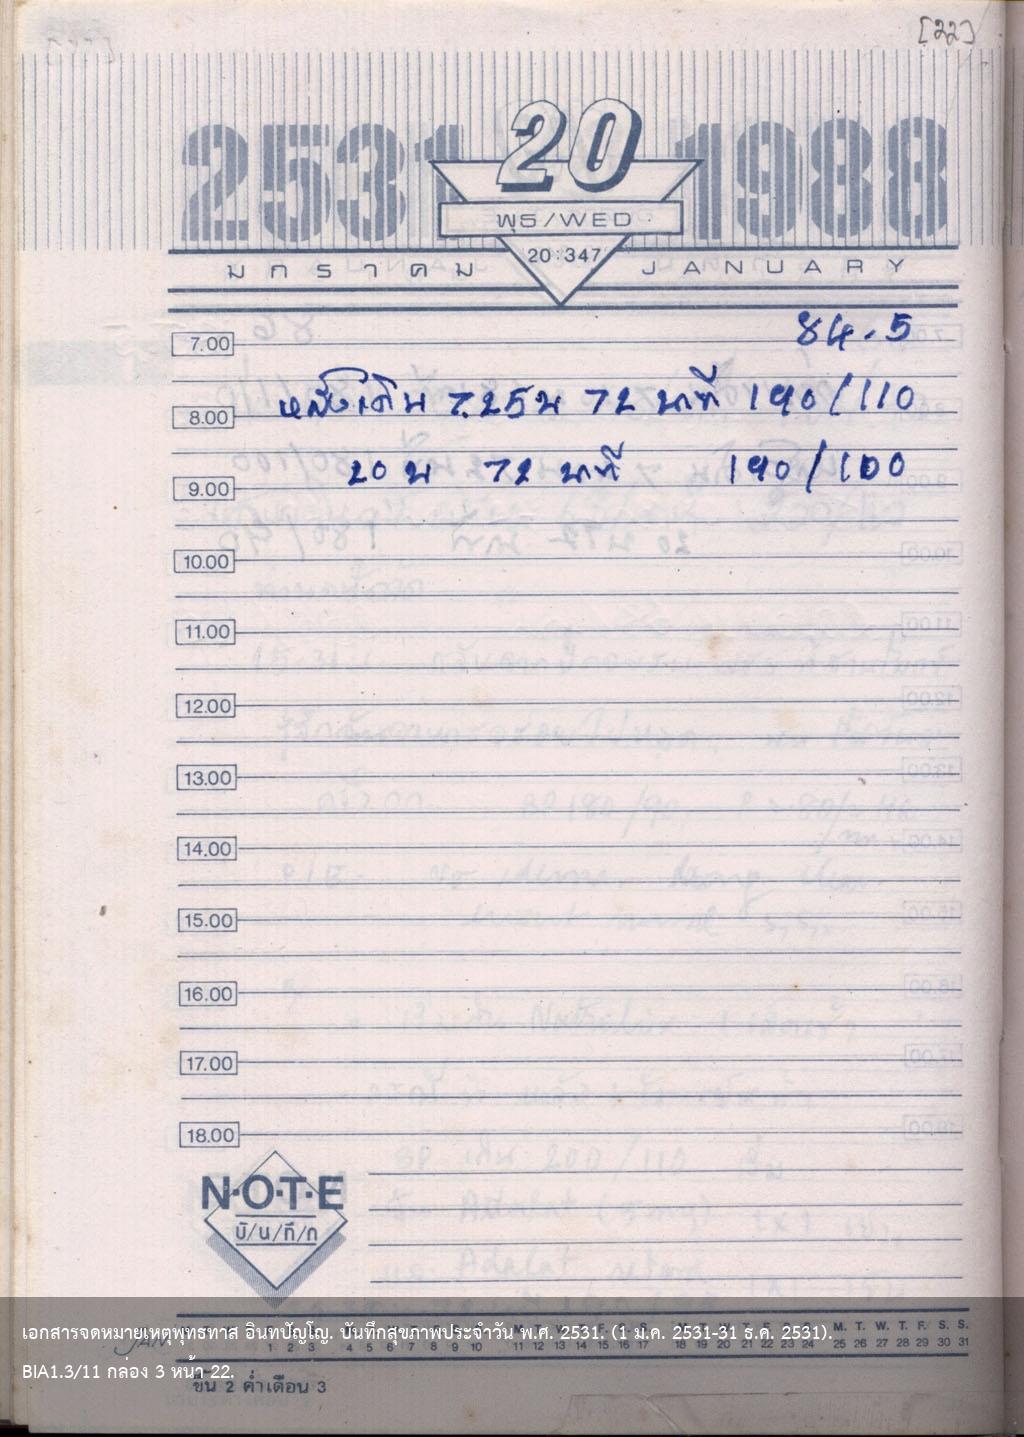 [22]
2531 20 1988
พุธ/WED
20:347
มกราคม JANUARY
84.5
7.00
หลังเดิน 7.25 น 72 นาที 190/110
8.00
20 น 72 นาที 190/100
9.00
10.00
11.00
12.00
13.00
14.00
15.00
16.00
17.00
18.00
N·O·T·E
บั/น/ทึ/ก
JAN
F. S. S. M. T. W. T. F. S. S. M. T. W. T. F. S. S. M. T. W. T. F. S. S. M. T. W. T. F. S. S.
1 2 3 4 5 6 7 8 9 10 11 12 13 14 15 16 17 18 19 20 21 22 23 24 25 26 27 28 29 30 31
เอกสารจดหมายเหตุพุทธทาส อินทปัญโญ. บันทึกสุขภาพประจำวัน พ.ศ. 2531. (1 ม.ค. 2531-31 ธ.ค. 2531).
BIA1.3/11 กล่อง 3 หน้า 22.
ขึ้น 2 ค่ำเดือน 3